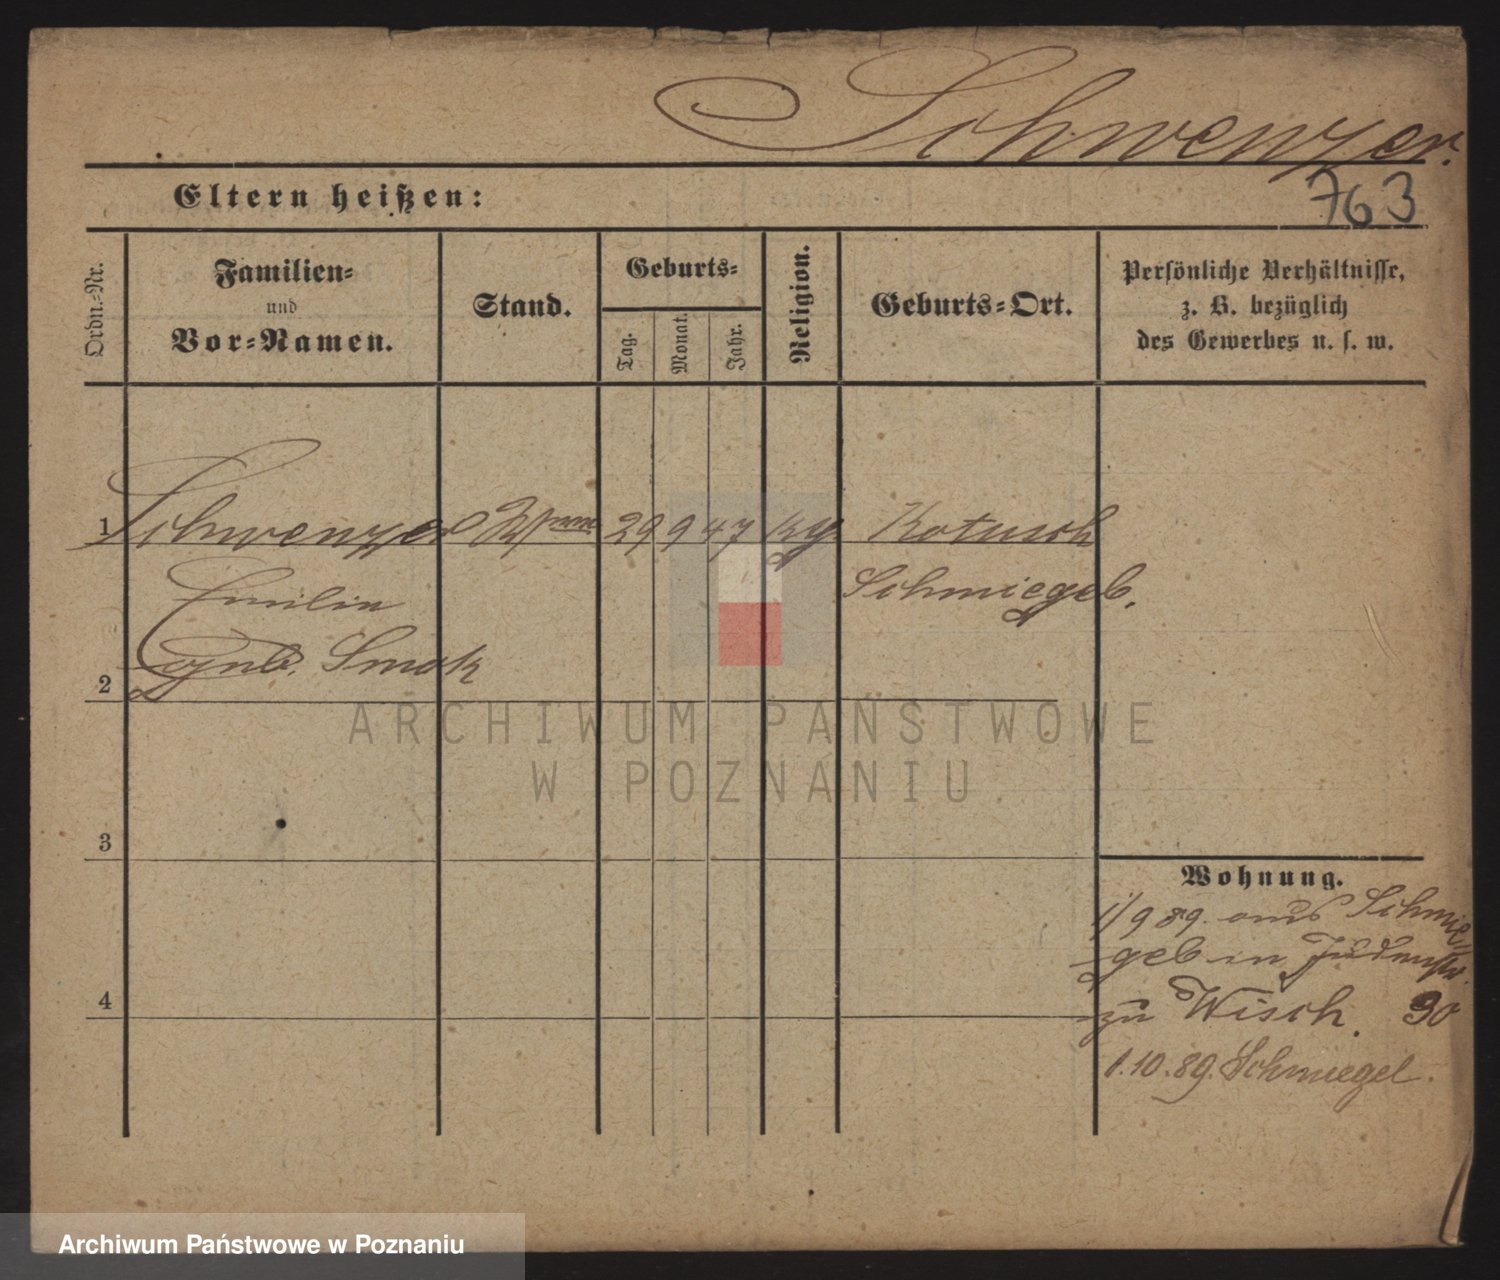 Schwenzer.
Eltern heißen:
763
Ordn.-Nr.
Familien-
und
Vor-Namen.
Stand.
Geburts-
Tag.
Monat.
Jahr.
Religion.
Geburts-Ort.
Persönliche Verhältnisse,
z. B. bezüglich
des Gewerbes u. s. w.
1 Schwenzer 29 9 47 Kotusch
Emilie Schmiegel.
geb. Smok
2
3
4
Wohnung.
1/9 89. aus Schmie-
gel in Judenstr.
zu Wisch. 30
1.10.89. Schmiegel.
ARCHIWUM PAŃSTWOWE
W POZNANIU
Archiwum Państwowe w Poznaniu